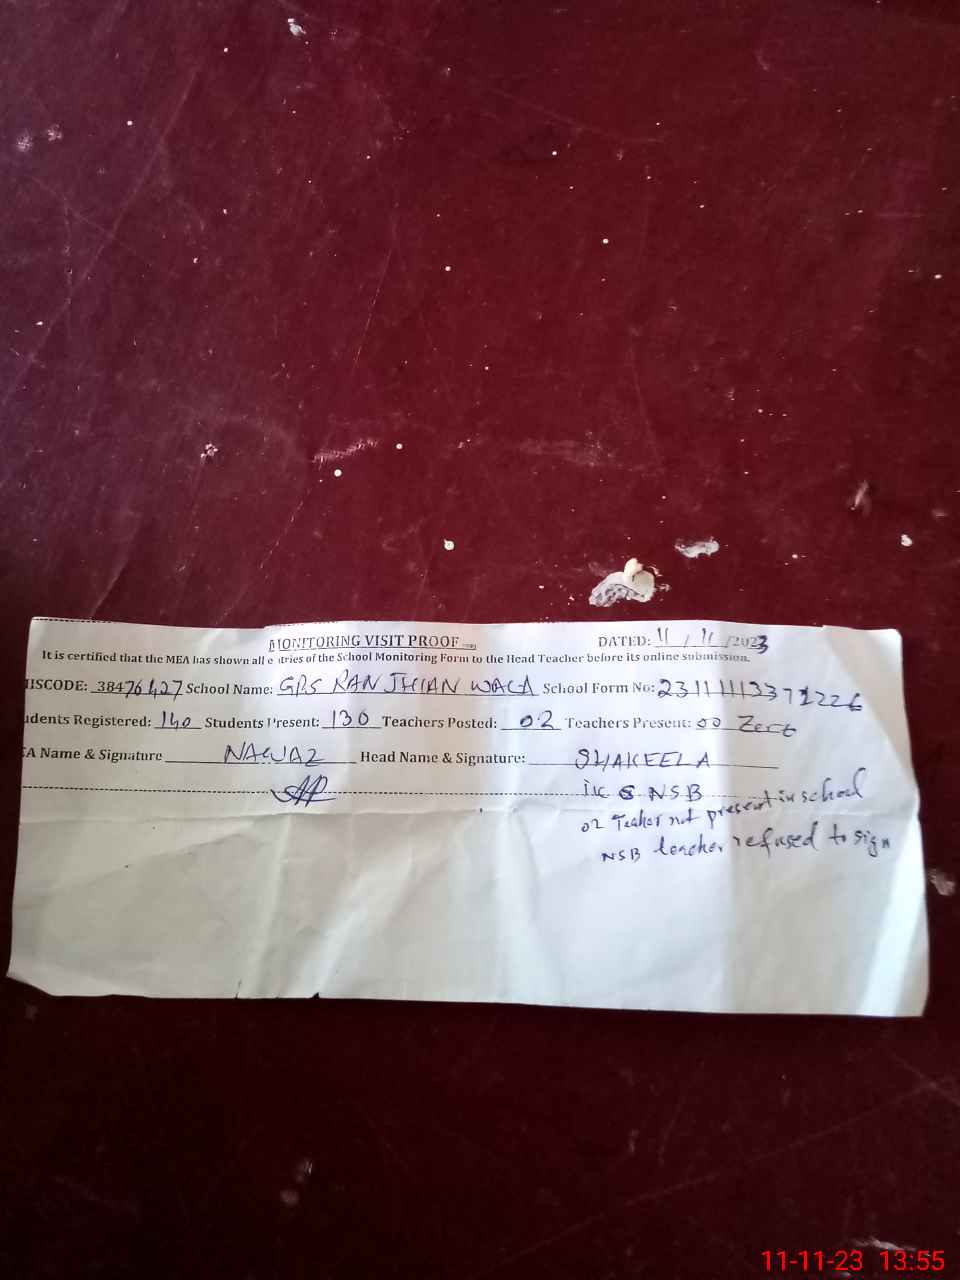 MONITORING VISIT PROOF
DATED: 11 / 11 /2023
It is certified that the MEA has shown all entries of the School Monitoring Form to the Head Teacher before its online submission.
ISCODE: 38476427 School Name: GPS RANJHIAN WALA School Form No: 2311111337
udents Registered: 140 Students Present: 130 Teachers Posted: 02 Teachers Present: 00 Zero
EA Name & Signature NAWAZ Head Name & Signature: SHAKEELA
NSB
02 Teacher not present in school
NSB teacher refused to sign
11-11-23 13:55